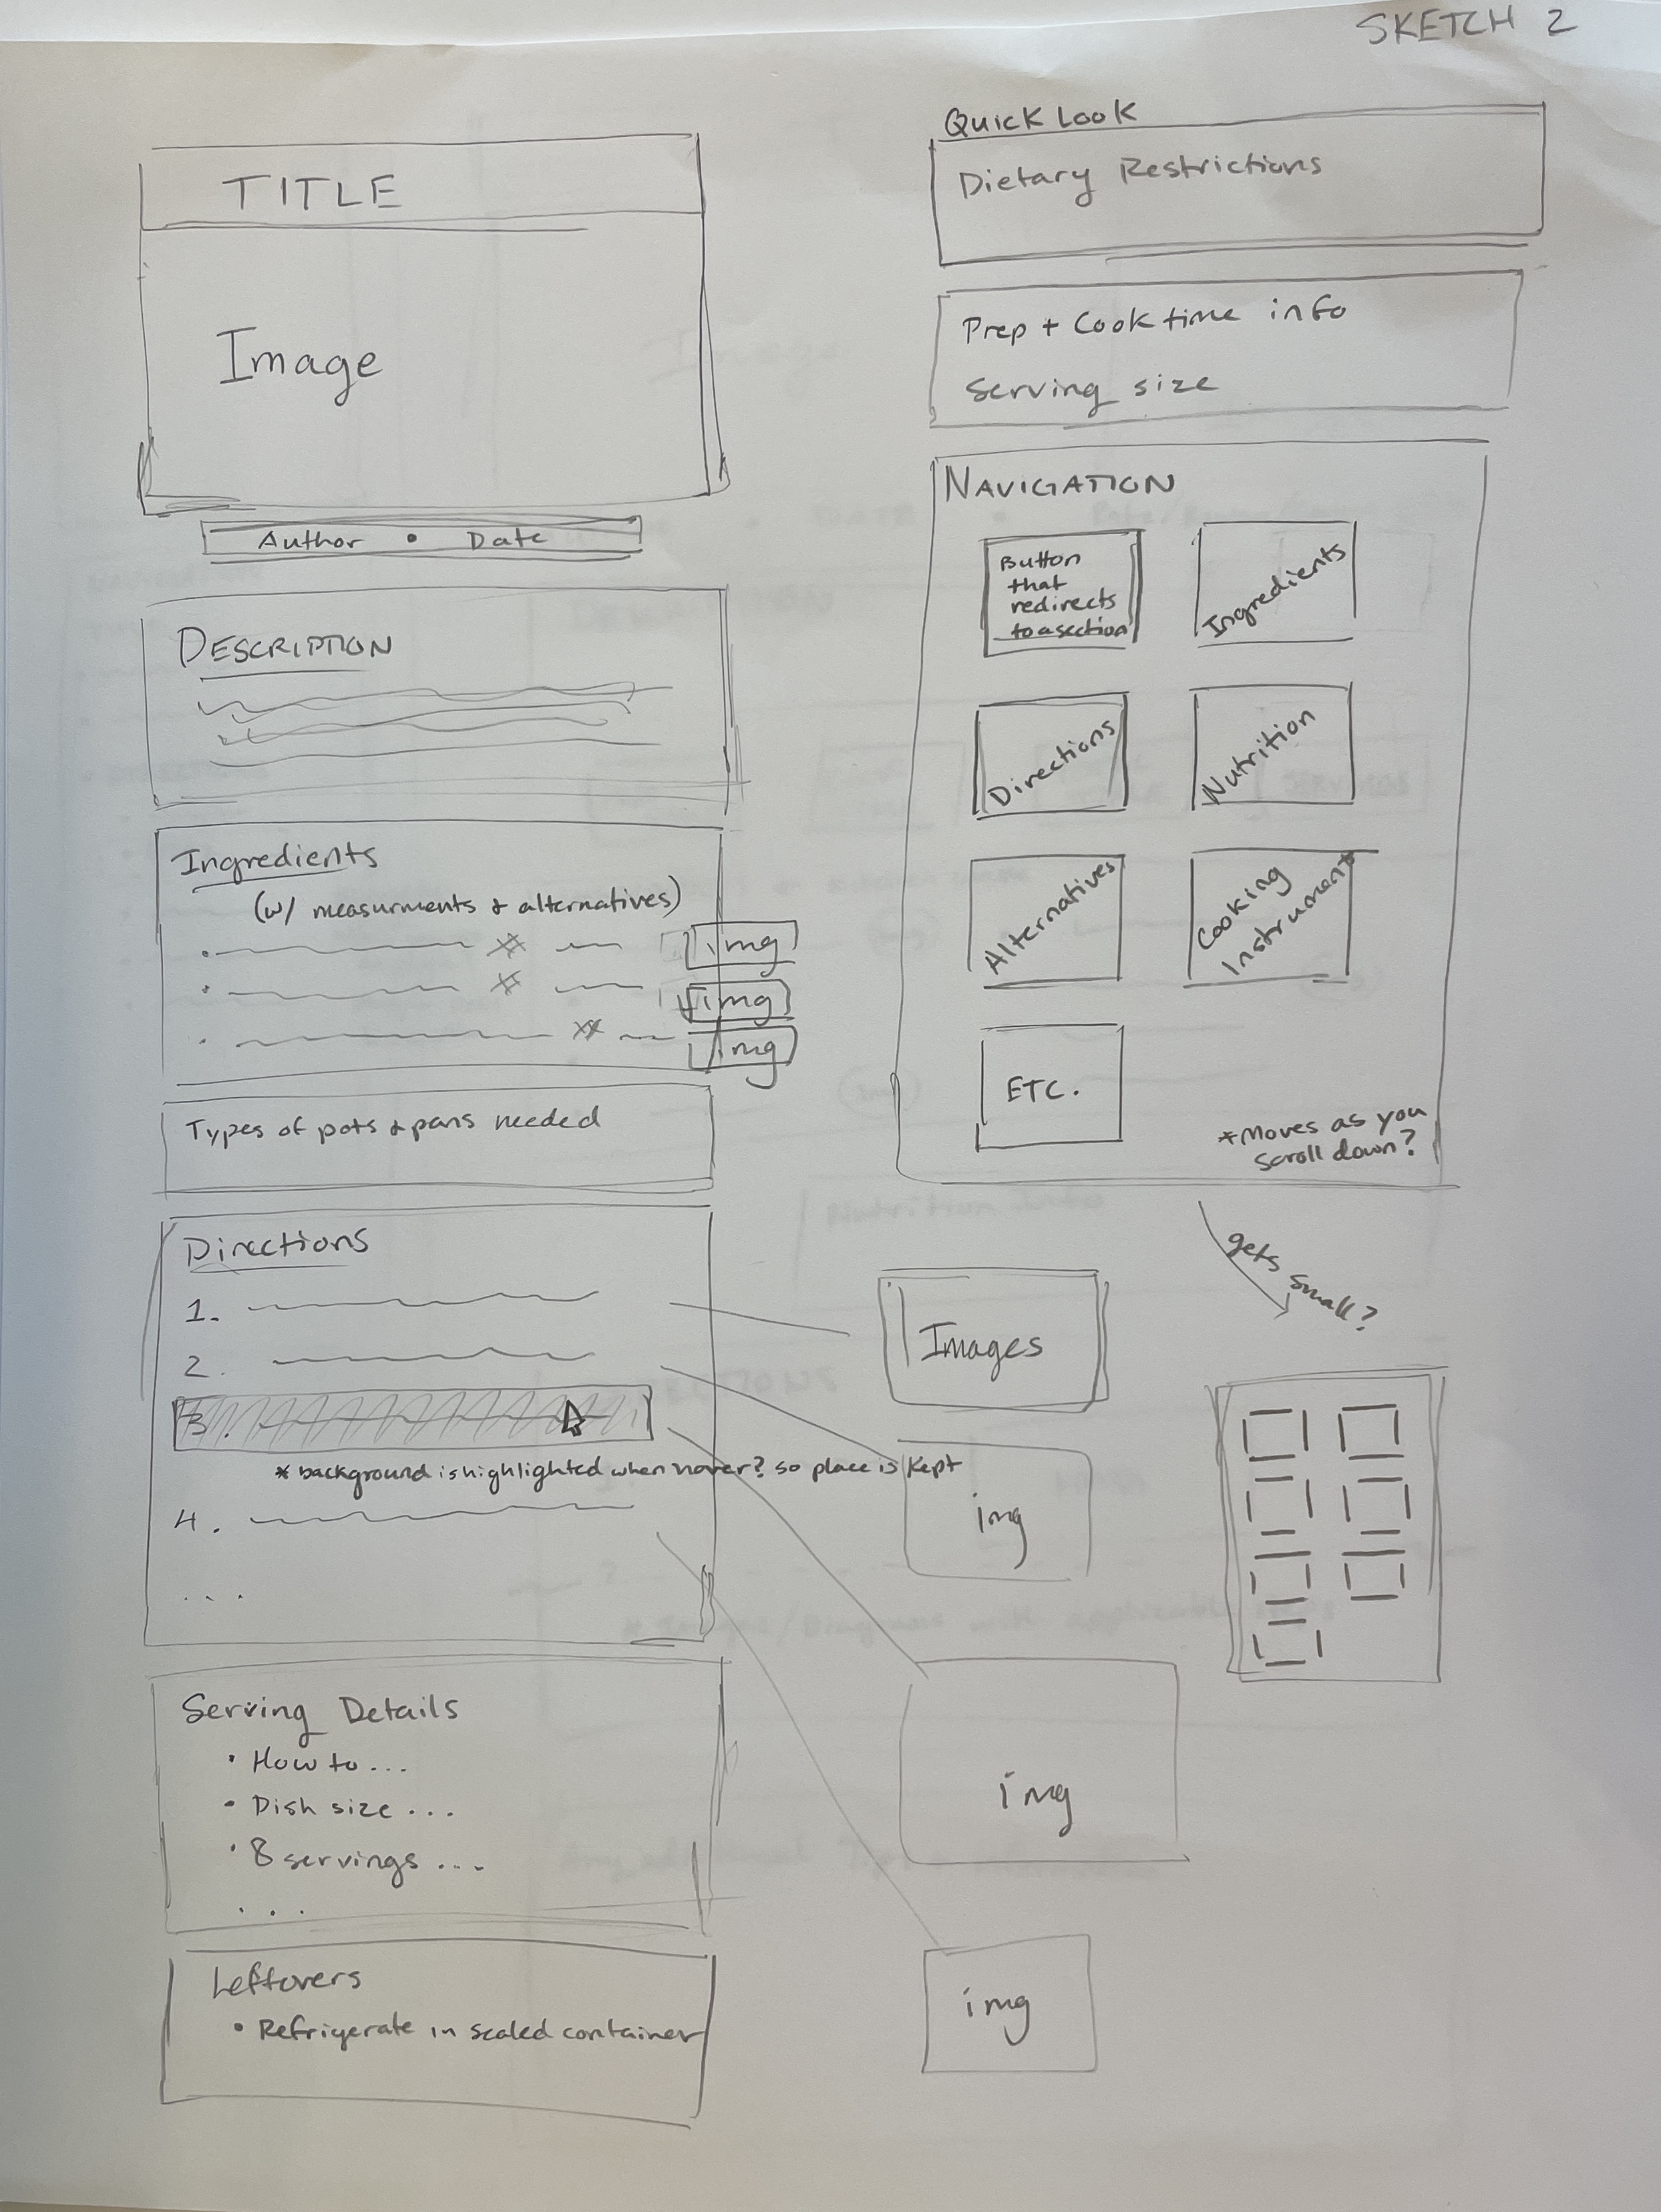 SKETCH 2
TITLE
Image
Author • Date
DESCRIPTION
Ingredients
(w/ measurments & alternatives)
img
img
img
Types of pots & pans needed
Directions
1.
2.
3.
* background is highlighted when hover? so place is kept
4.
...
Serving Details
• How to ...
• Dish size ...
• 8 servings ...
...
Leftovers
• Refrigerate in sealed container
Quick Look
Dietary Restrictions
Prep + Cook time info
Serving size
NAVIGATION
Button
that
redirects
to a section
Ingredients
Directions
Nutrition
Alternatives
Cooking
Instruments
ETC.
*Moves as you
scroll down?
gets small?
Images
img
img
img